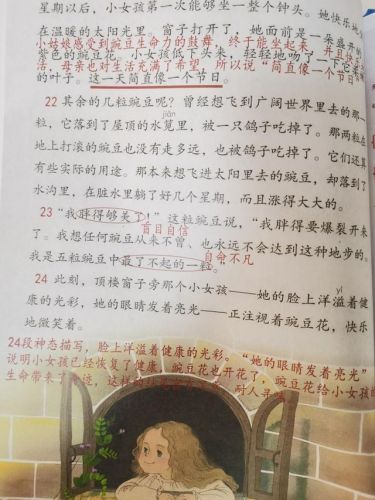 星期以后，小女孩第一次能够坐一整个钟头。她快乐地
在温暖的太阳光里。窗子打开了，她面前是一朵盛开的
小姑娘感受到豌豆生命力的鼓舞，终于能坐起来，并且快乐
紫色的豌豆花。小女孩低下头来，轻轻地吻了一下它柔
活，母亲也对生活充满了希望，所以说“简直像一个节日”
的叶子。这一天简直像一个节日。
22 其余的几粒豌豆呢？曾经想飞到广阔世界里去的那一
jiǎn
粒，它落到了屋顶的水笕里，被一只鸽子吃掉了。那两粒在
地上打滚的豌豆也没有走多远，也被鸽子吃掉了。它们还算
有些实际的用途。那本来想飞进太阳里去的豌豆，却落到了
水沟里，在脏水里躺了好几个星期，而且涨得大大的。
23 “我胖得够美了！”这粒豌豆说，“我胖得要爆裂开来
盲目自信
了。我想任何豌豆从来不曾、也永远不会达到这种地步的。
我是五粒豌豆中最了不起的一粒。”
自命不凡
yì
24 此刻，顶楼窗子旁那个小女孩——她的脸上洋溢着健
康的光彩，她的眼睛发着亮光——正注视着豌豆花，快乐
地微笑着。
24段神态描写，脸上洋溢着健康的光彩。“她的眼睛发着亮光”
说明小女孩已经恢复了健康，豌豆花也开花了，豌豆花给小女孩的
生命带来了 这样的 耐人寻味